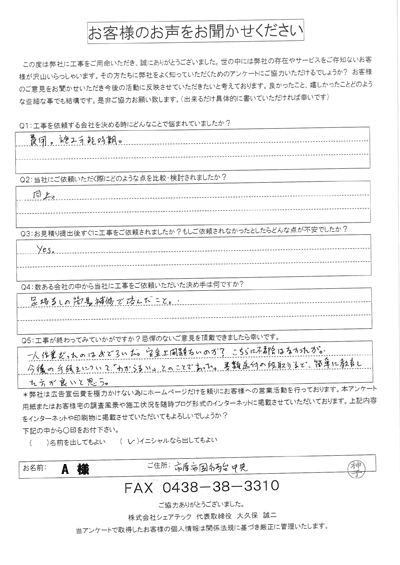 お客様のお声をお聞かせください
この度は弊社に工事をご用命いただき、誠にありがとうございました。世の中には弊社の存在やサービスをご存知ないお客
様が沢山いらっしゃいます。その方たちに弊社をよく知っていただくためのアンケートにご協力いただけるでしょうか? お客様
のご意見をお聞かせいただき今後の活動に反映させていただきたいと考えております。良かったこと、嬉しかったことどのよう
な些細な事でも結構です。是非ご協力お願い致します。(出来るだけ具体的に書いていただければ幸いです)
Q1:工事を依頼する会社を決める時にどんなことで悩まれていましたか?
費用。施工可能時期。
Q2:当社にご依頼いただく際にどのような点を比較・検討されましたか?
同上。
Q3:お見積り提出後すぐに工事をご依頼されましたか?もしご依頼されなかったとしたらどんな点が不安でしたか?
Yes。
Q4:数ある会社の中から当社に工事をご依頼いただいた決め手は何ですか?
足場なしの簡易補修で済んだこと。
Q5:工事が終わってみていかがですか?忌憚のないご意見を頂戴できましたら幸いです。
一人作業だったのはおどろいた。安全上問題ないのか?こちらに不都合はなかったが。
今後の手続きについて「わからない」とのことであった。
た方が良いと思う。
*弊社は広告宣伝費を極力かけない為にホームページだけを頼りにお客様への営業活動を行っております。本アンケート
用紙またはお客様宅の調査風景や施工状況を随時ブログ形式のインターネットに掲載させていただいております。上記内容
をインターネットや印刷物に掲載させていただいてもよろしいでしょうか?
下記の中から〇印をお付下さい。
( )名前を出してもよい (✓)イニシャルなら出してもよい
お名前: A 様 ご住所: 市原市国分寺台中央
FAX 0438-38-3310
ご協力ありがとうございました。
株式会社シェアテック 代表取締役 大久保 誠二
当アンケートで取得したお客様の個人情報は関係法規に基づき厳正に管理いたします。